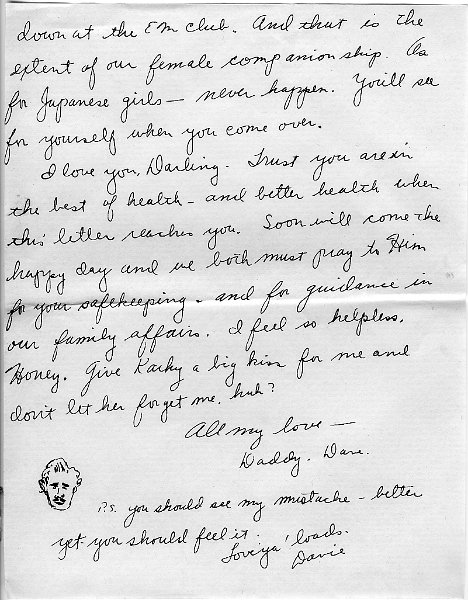 down at the EM club. And that is the
extent of our female companionship. As
for Japanese girls — never happen. You'll see
for yourself when you come over.
I love you, Darling. Trust you are in
the best of health - and better health when
this letter reaches you. Soon will come the
happy day and we both must pray to Him
for your safekeeping - and for guidance in
our family affairs. I feel so helpless,
Honey. Give Kathy a big kiss for me and
don't let her forget me, huh?
All my love —
Daddy. Dave.
P.S. you should see my mustache - better
yet - you should feel it.
Love ya' loads.
Davie